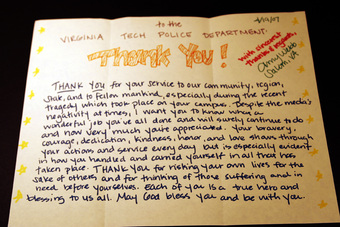 to the
4/19/07
VIRGINIA TECH POLICE DEPARTMENT:
THANK YOU!
with sincerest
thanks & regards,
THANK YOU for your service to our community, region,
state, and to fellow mankind, especially during the recent
tragedy which took place on your campus. Despite the media's
negativity at times, I want you to know what a
wonderful job you've all done and will surely continue to do
and how very much you're appreciated. Your bravery,
courage, dedication, kindness, honor, and love shows through
your actions and service every day but is especially evident
in how you handled and carried yourself in all that has
taken place. THANK YOU for risking your own lives for the
sake of others and for thinking of those suffering and in
need before yourselves. Each of you is a true hero and
blessing to us all. May God bless you and be with you.